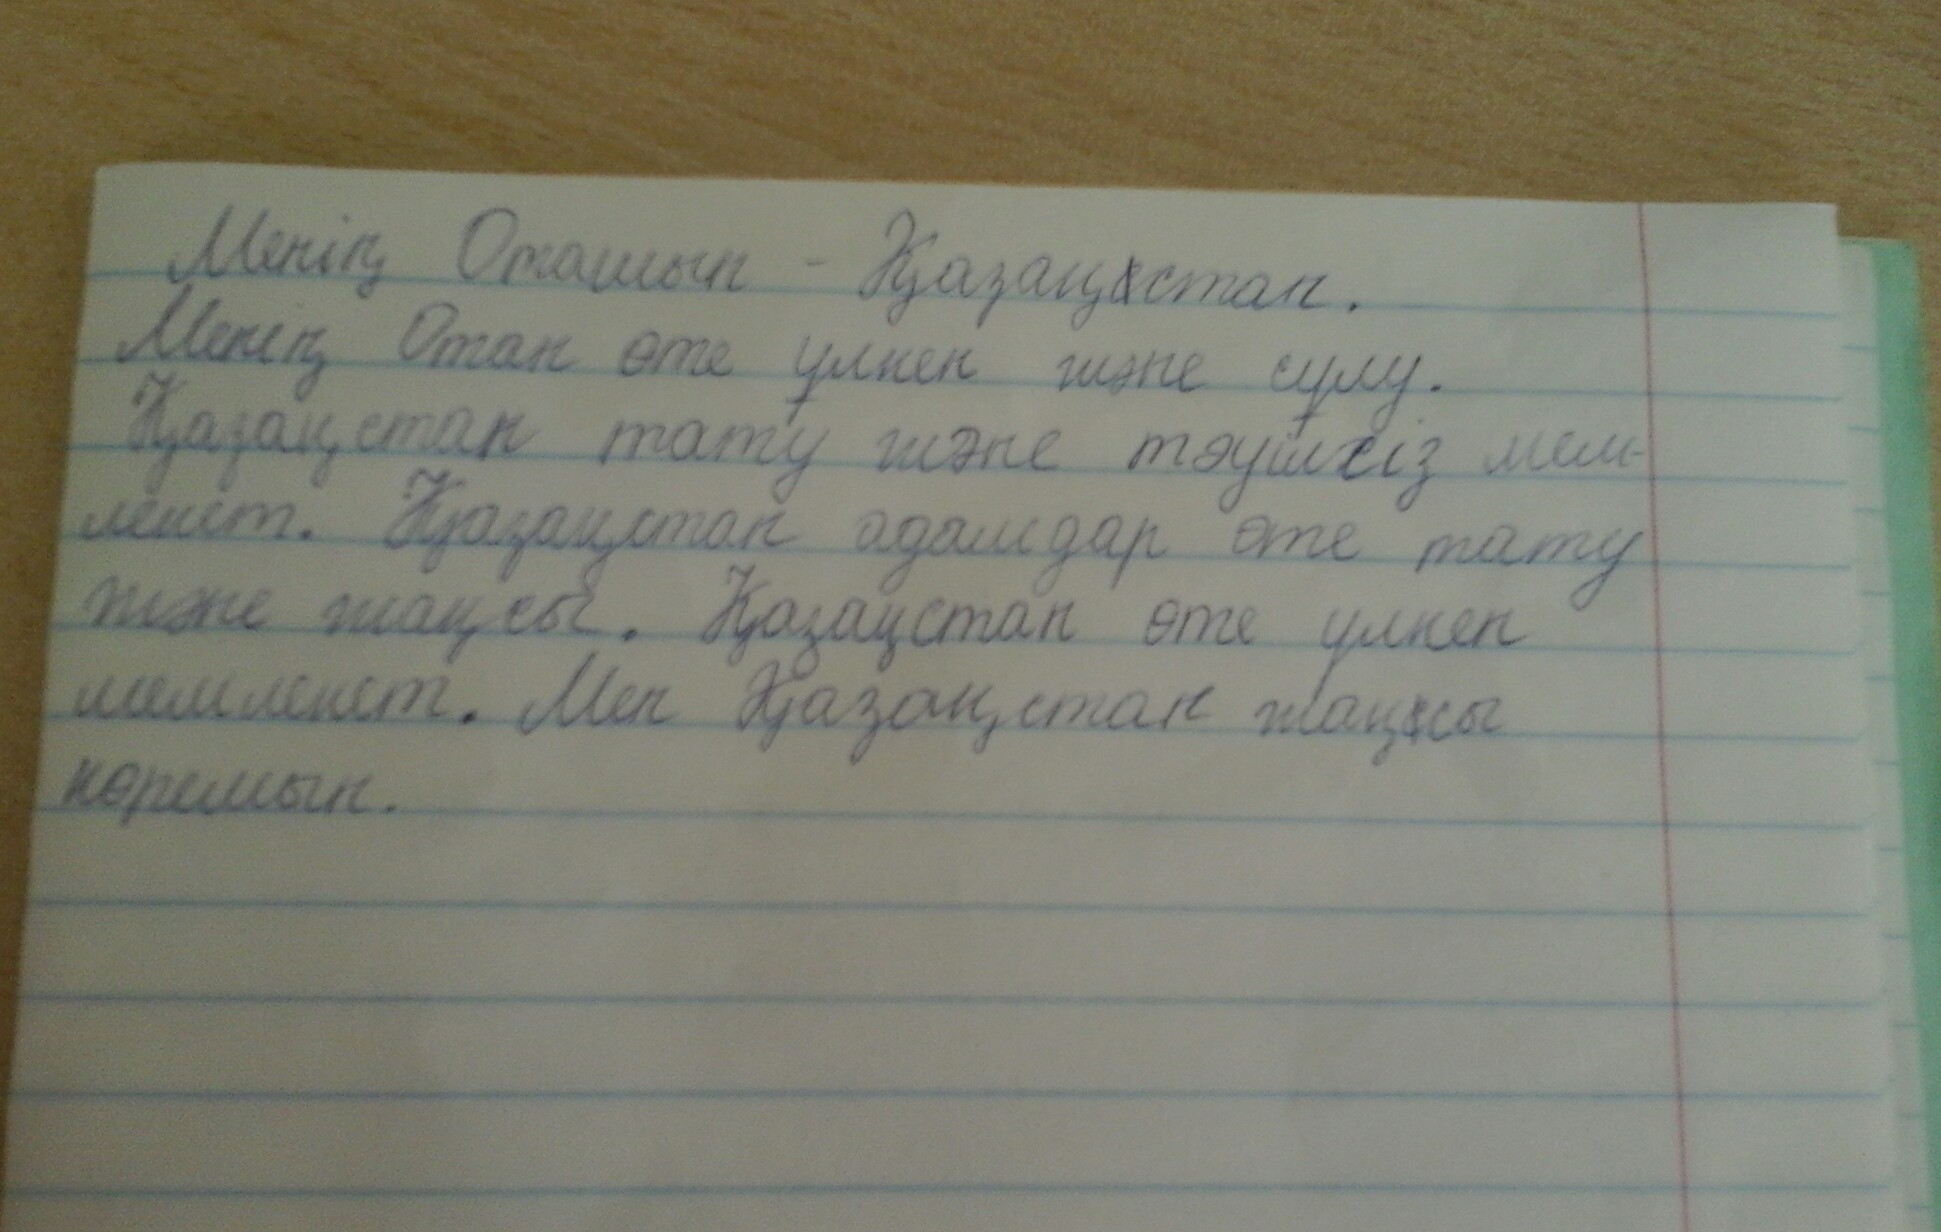 Менің Оташын - Қазақстан.
Менің Отан өте үлкен және сұлу.
Қазақстан тату және тәуілсіз мем-
лекет. Қазақстан адамдар өте тату
және жақсы. Қазақстан өте үлкен
мемлекет. Мен Қазақстан жақсы
көремын.